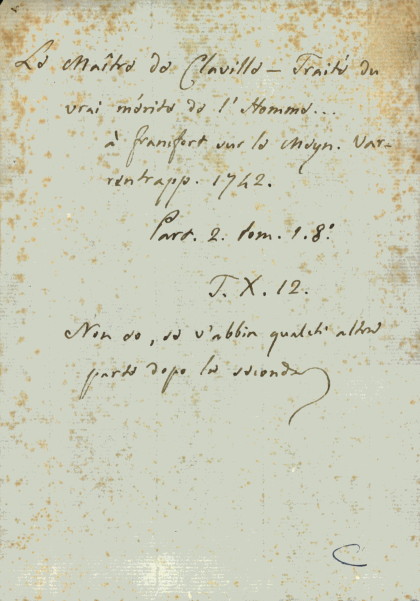 Le Maître de Claville — Traité du
vrai mérite de l'Homme...
à francfort sur le Meyn. Var-
rentrapp. 1742.
Part. 2. tom. 1. 8.°
T. X. 12.
Non so, se v'abbia qualch' altra
parte dopo la seconda
C